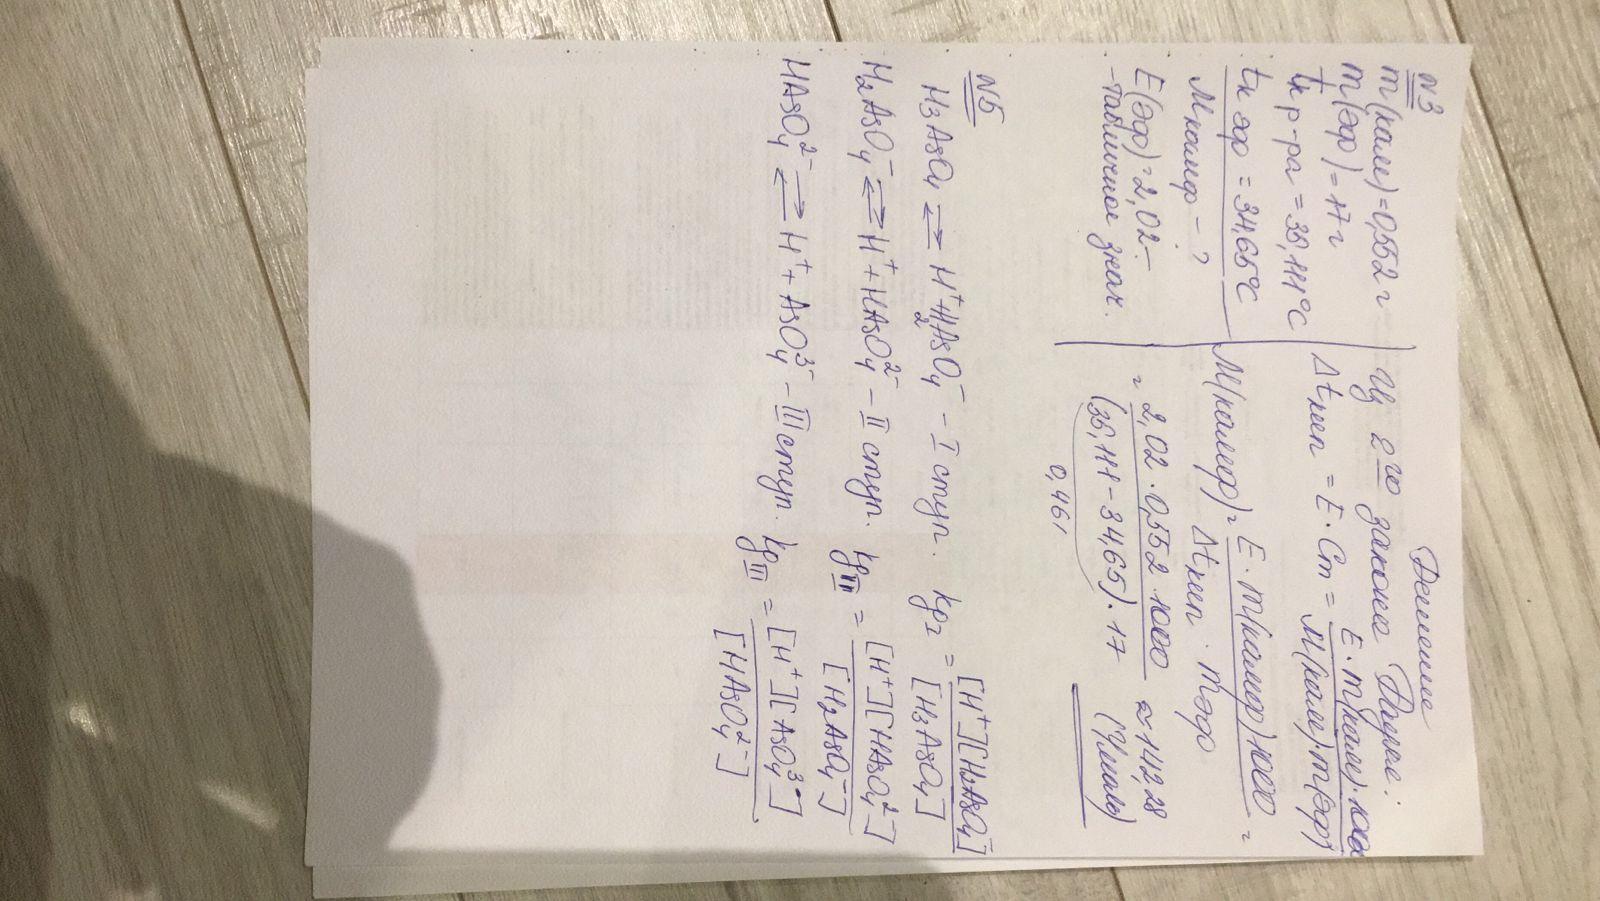 №3
Решение
m(камф)=0,552 г
m(эф)=17 г
tк р-ра = 35,111°C
tк эф = 34,65°C
Mкамф - ?
E(эф)=2,02 -
- табличное знач.
Из 2го закона Рауля:
Δtкип = E · Cm = E · m(камф) · 1000 / M(камф) m(эф)
M(камф) = E · m(камф) 1000 / Δtкип · mэф =
= 2,02 · 0,552 · 1000 / (35,111 - 34,65) · 17 ≈ 142,28 (г/моль)
0,461
№5
H3AsO4 ⇄ H+ + H2AsO4- - I ступ. kgI = [H+][H2AsO4-] / [H3AsO4]
H2AsO4- ⇄ H+ + HAsO4 2- - II ступ. kgII = [H+][HAsO4 2-] / [H2AsO4-]
HAsO4 2- ⇄ H+ + AsO4 3- - III ступ. kgIII = [H+][AsO4 3-] / [HAsO4 2-]